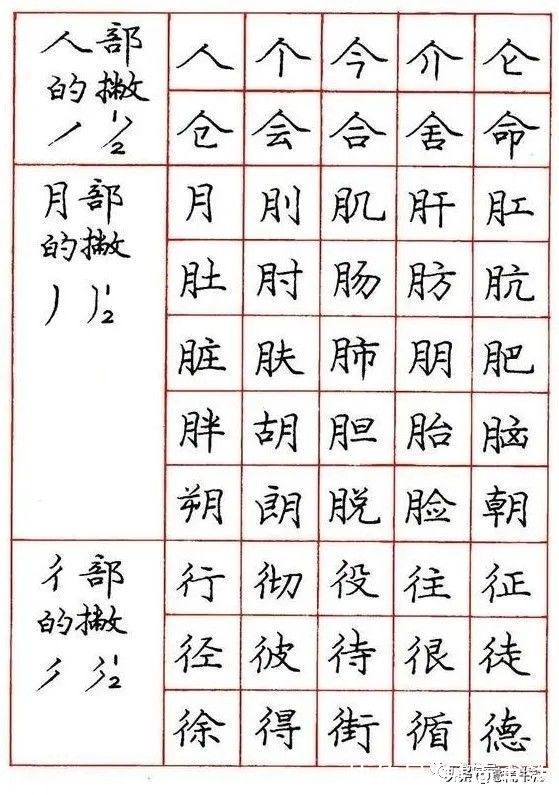 人部
的撇
丿 1/2
人 个 今 介 仑
仓 会 合 舍 命
月部
的撇
丿 丿1/2
月 刖 肌 肝 肛
肚 肘 肠 肪 肮
脏 肤 肺 朋 肥
胖 胡 胆 胎 脑
朔 朗 脱 脸 朝
彳部
的撇
1/2
行 彻 役 往 征
径 彼 待 很 徒
徐 得 街 循 德